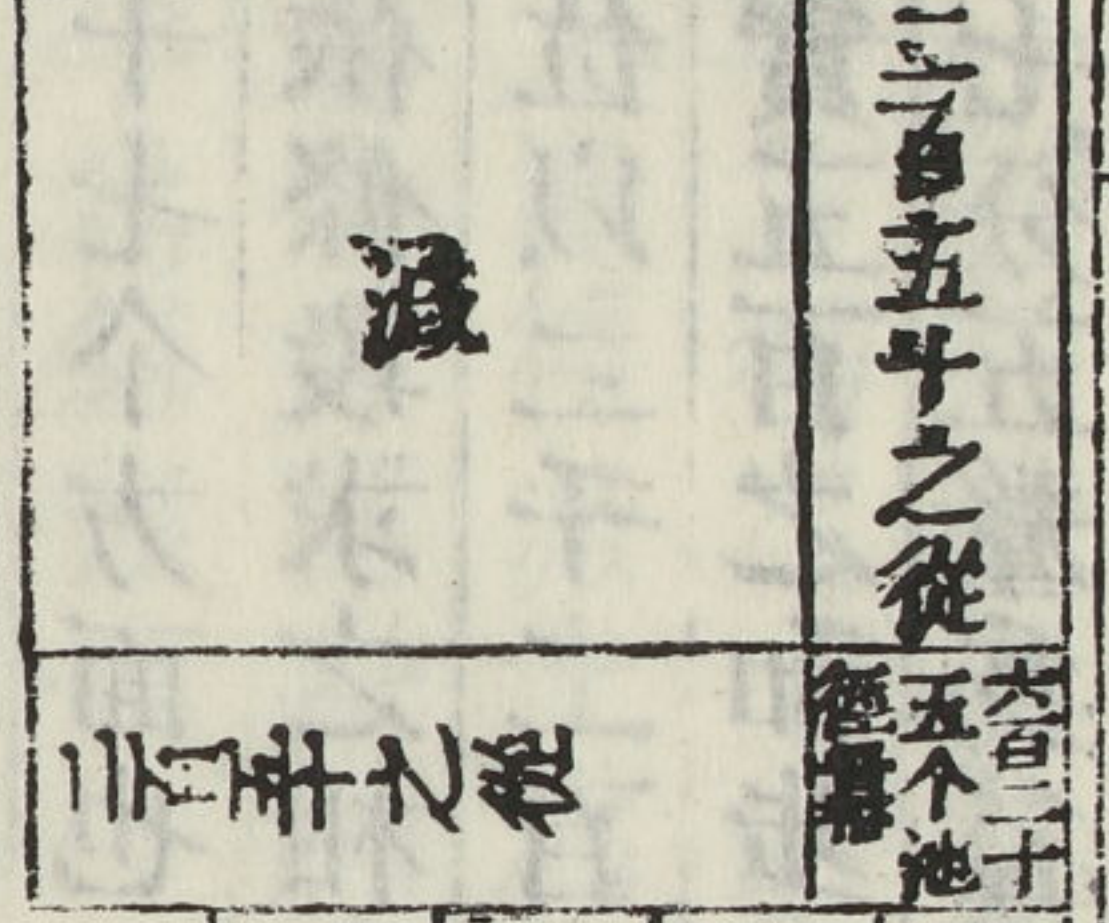 二百五十之從
減
六百二十
五个池
徑冪
二百五十之從